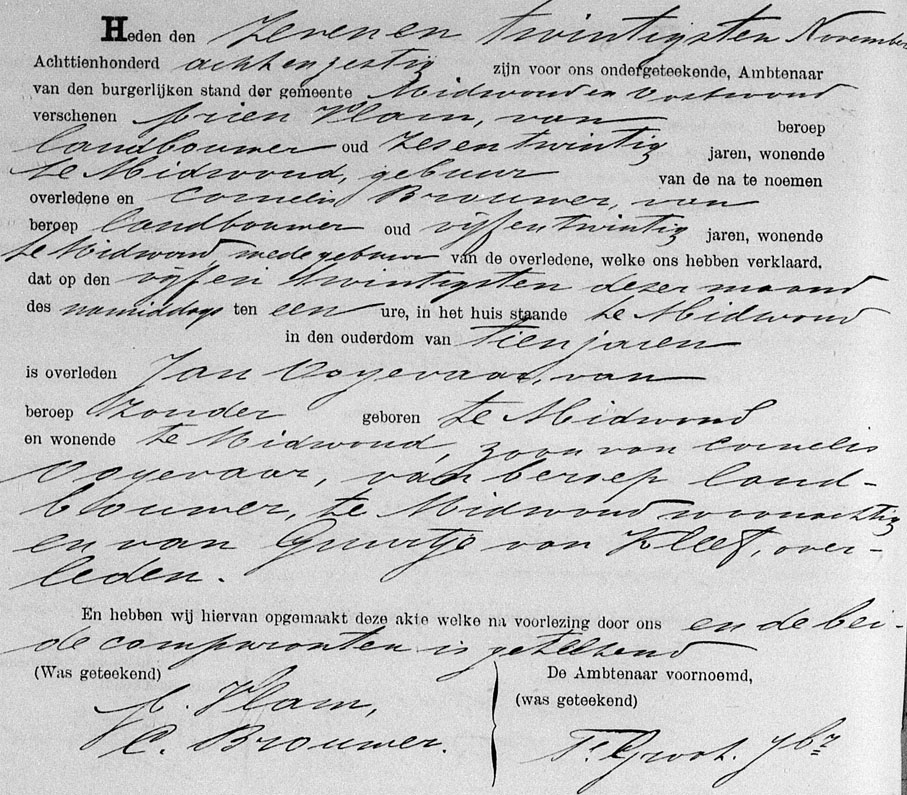 Heden den Zeven en twintigsten November
Achttienhonderd acht en zestig zijn voor ons ondergeteekende, Ambtenaar
van den burgerlijken stand der gemeente Midwoud en Oostwoud
verschenen Arien Vlam, van beroep
landbouwer oud zesentwintig jaren, wonende
te Midwoud, gebuur van de na te noemen
overledene en Cornelis Brouwer, van
beroep landbouwer oud vijfentwintig jaren, wonende
te Midwoud, mede gebuur van de overledene, welke ons hebben verklaard,
dat op den vijfen twintigsten dezer maand
des namiddags ten een ure, in het huis staande te Midwoud
in den ouderdom van tien jaren
is overleden Jan Ooyevaar, van
beroep zonder geboren te Midwoud
en wonende te Midwoud, zoon van Cornelis
Ooyevaar, van beroep land-
bouwer, te Midwoud woonachtig
en van Guurtje van Kleef, over-
leden.
En hebben wij hiervan opgemaakt deze akte welke na voorlezing door ons en de bei-
de comparanten is geteekend
(Was geteekend) De Ambtenaar voornoemd,
A. Vlam, (was geteekend)
C. Brouwer. Groot. Jbz